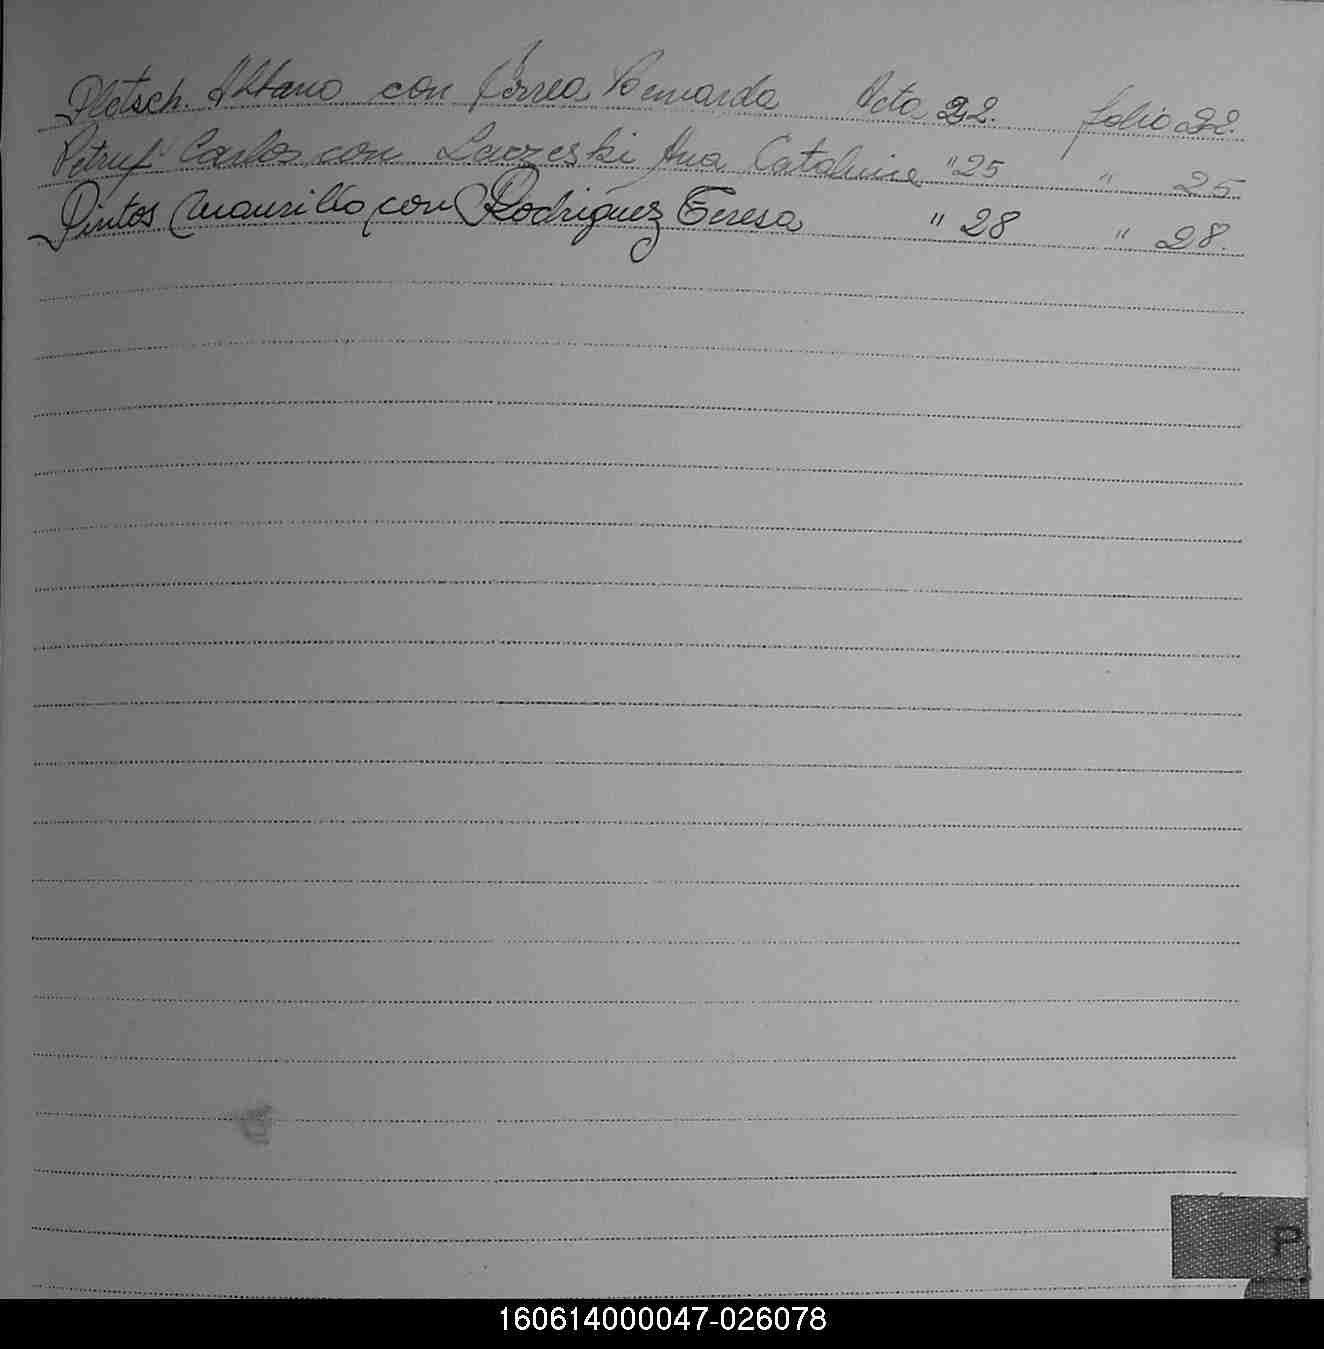 Pletsch. Albano con Correa Bernarda Acta 22. folio 22.
Petruf Carlos con Laczeski Ana Catalina " 25 " 25
Pintos Maurilio con Rodriguez Teresa " 28 " 28.
P
160614000047-026078